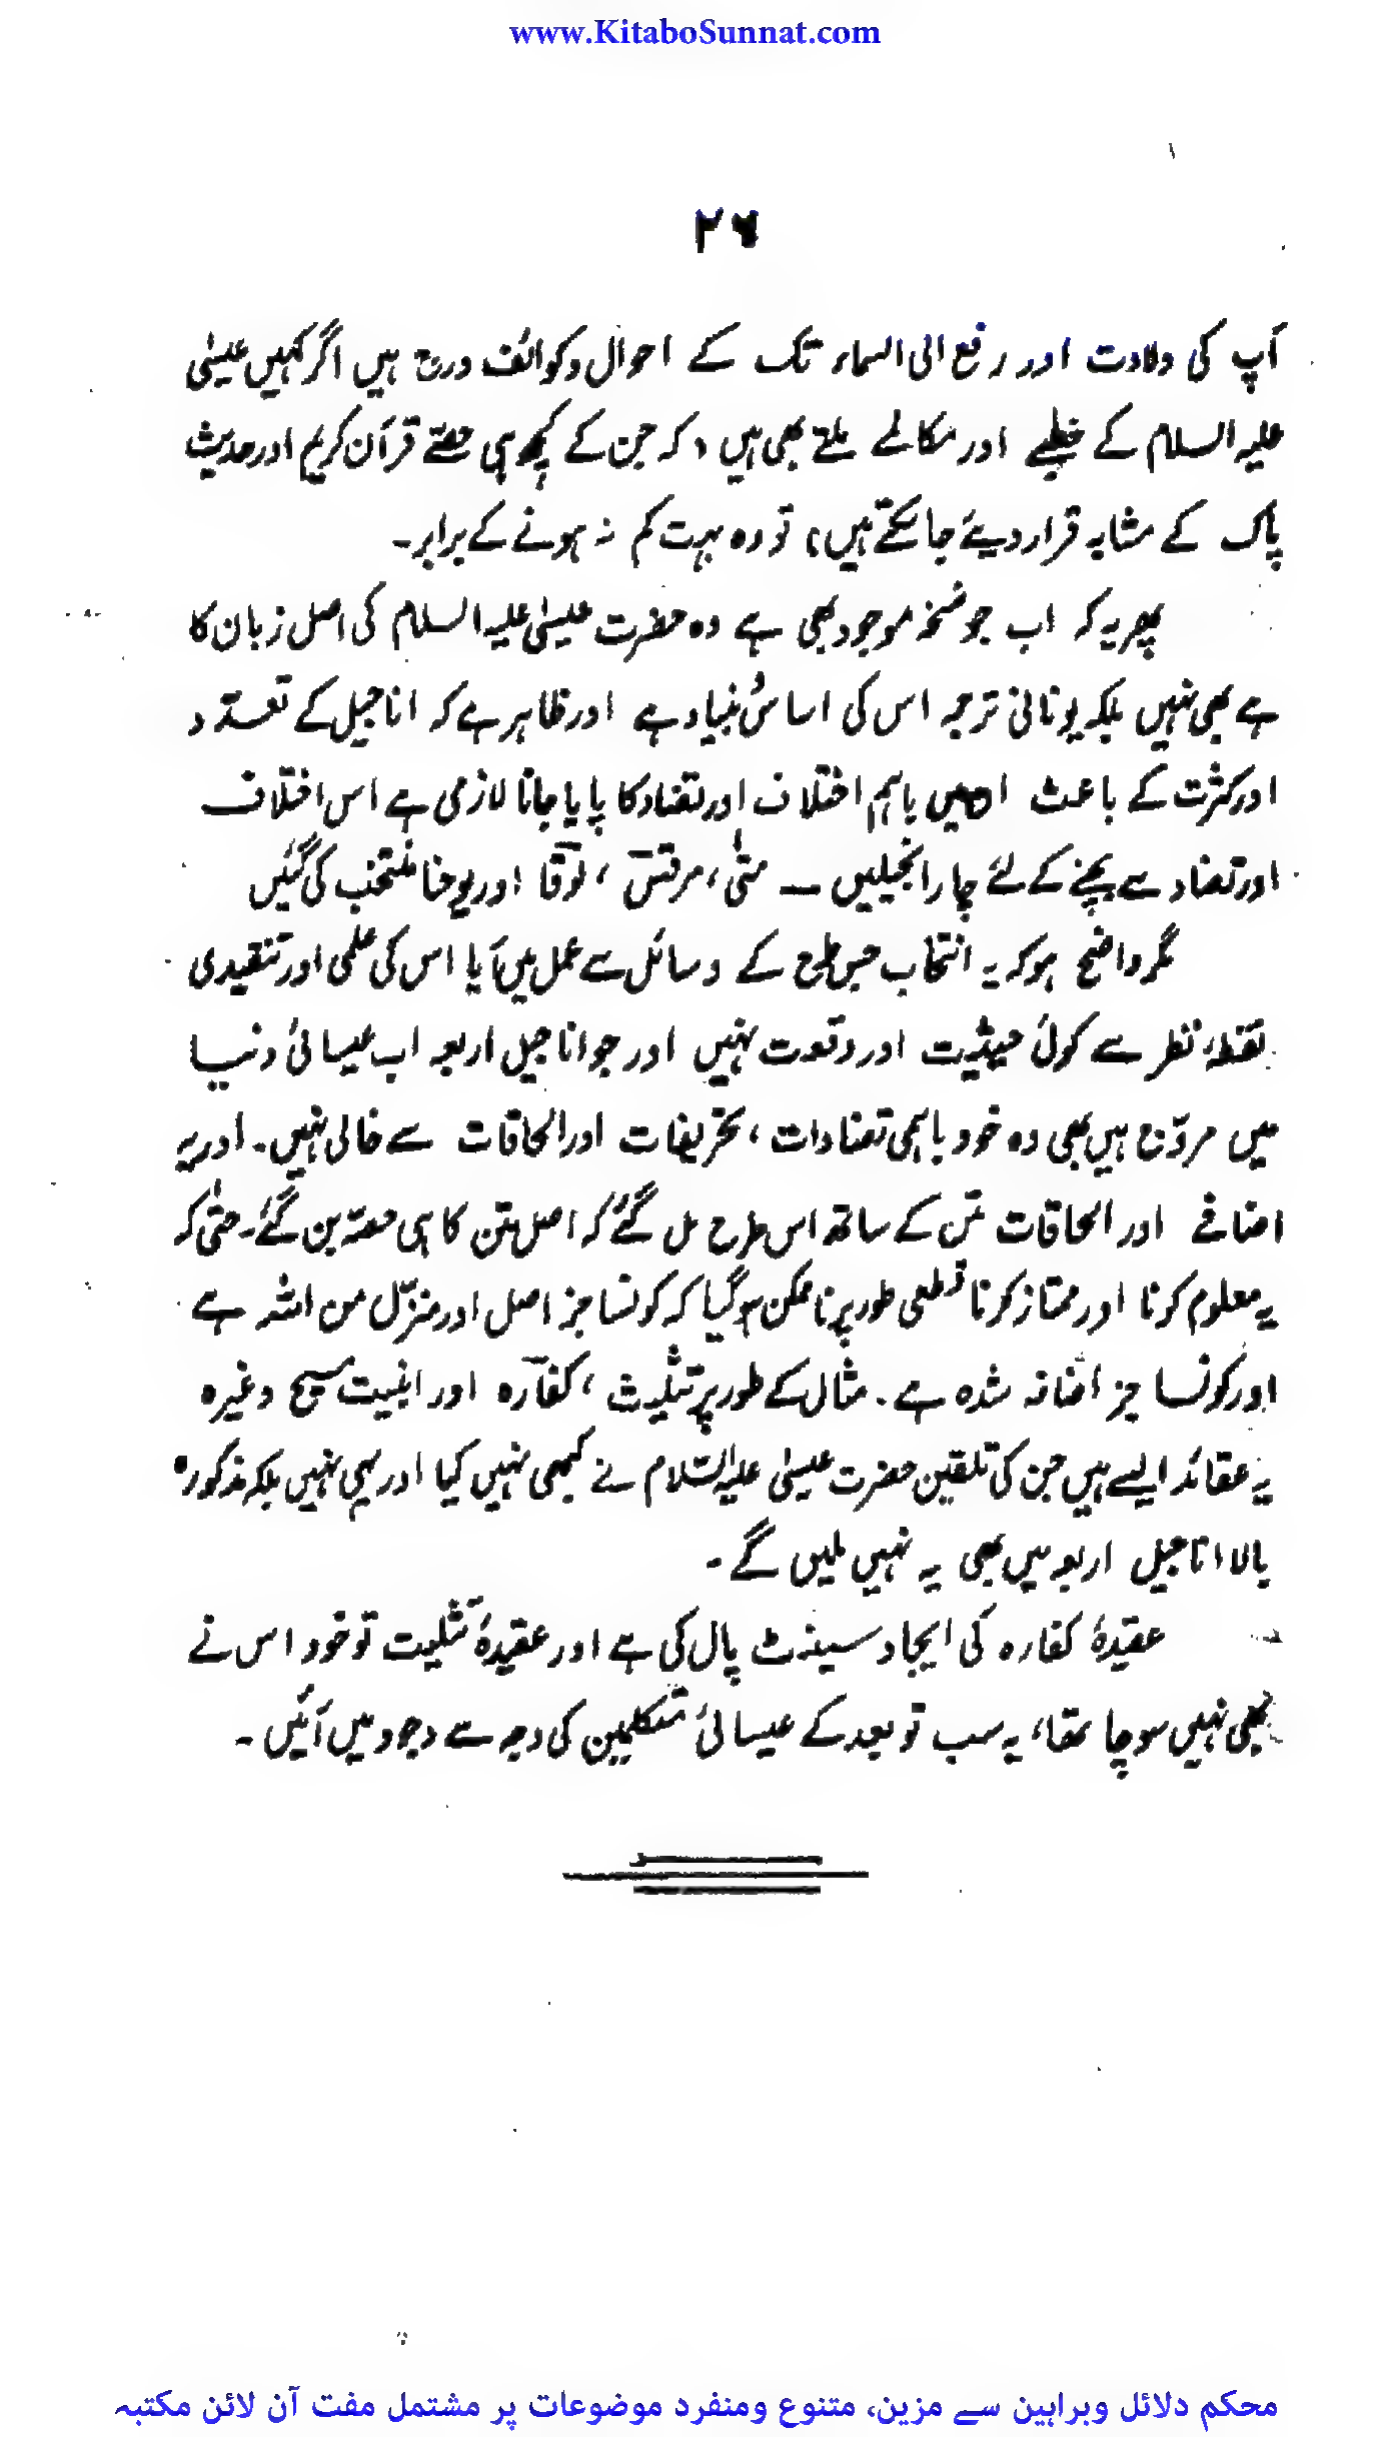 www.KitaboSunnat.com
۲۶
آپ کی ولادت اور رفع الی السماء تک کے احوال و کوائف درج ہیں اگر کہیں عیسیٰ
علیہ السلام کے خطبے اور مکالمے ملتے بھی ہیں (کہ جن کے کچھ ہی حصّے قرآن کریم اور حدیث
پاک کے مشابہ قرار دیئے جا سکتے ہیں) تو وہ بہت کم نہ ہونے کے برابر۔
پھر یہ کہ اب جو نسخہ موجود بھی ہے وہ حضرت عیسیٰ علیہ السلام کی اصل زبان کا
ہے بھی نہیں بلکہ یونانی ترجمہ اس کی اساس و بنیاد ہے اور ظاہر ہے کہ اناجیل کے تعدّد
اور کثرت کے باعث ان میں باہم اختلاف اور تضاد کا پایا جانا لازمی ہے اس اختلاف
اور تضاد سے بچنے کے لئے چار انجیلیں — متیٰ، مرقسؔ، لوقاؔ اور یوحنا منتخب کی گئیں
مگر واضح ہو کہ یہ انتخاب جس طرح کے وسائل سے عمل میں آیا اس کی علمی اور تنقیدی
نقطۂ نظر سے کوئی حیثیت اور وقعت نہیں اور جو اناجیل اربعہ اب عیسائی دنیا
میں مروّج ہیں بھی وہ خود باہمی تضادات، تحریفات اور الحاقات سے خالی نہیں۔ اور یہ
اضافے اور الحاقات متن کے ساتھ اس طرح مل گئے کہ اصل متن کا ہی حصّہ بن گئے۔ حتیٰ کہ
یہ معلوم کرنا اور ممتاز کرنا قطعی طور پر ناممکن ہو گیا کہ کونسا جز اصل اور منزّل من اللہ ہے
اور کونسا جز اضافہ شدہ ہے۔ مثال کے طور پر تثلیث، کفارہ اور ابنیت مسیح وغیرہ
یہ عقائد ایسے ہیں جن کی تلقین حضرت عیسیٰ علیہ السّلام نے کبھی نہیں کیا اور یہی نہیں بلکہ مذکورہ
بالا اناجیل اربعہ میں بھی یہ نہیں ملیں گے۔
عقیدۂ کفارہ کی ایجاد سینٹ پال کی ہے اور عقیدۂ تثلیت تو خود اس نے
بھی نہیں سوچا تھا، یہ سب تو بعد کے عیسائی متکلمین کی وجہ سے وجود میں آئیں۔
محکم دلائل وبراہین سے مزین، متنوع ومنفرد موضوعات پر مشتمل مفت آن لائن مکتبہ